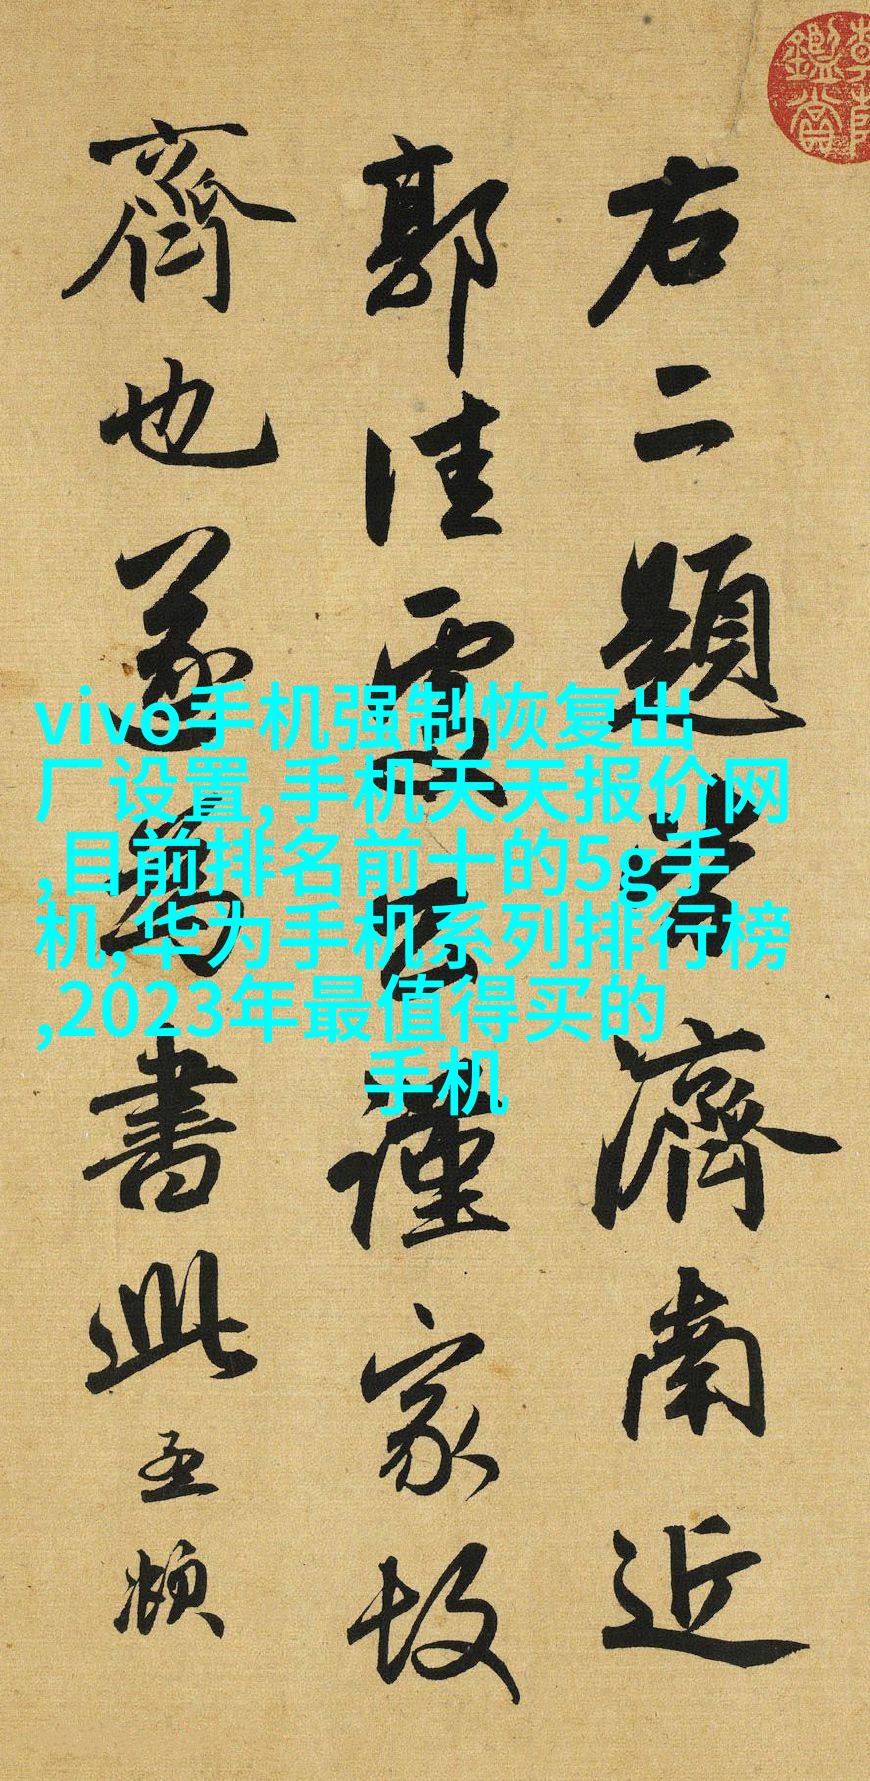 右二題皆濟南近
郭佳處公謹家故
齊也遂為書此孟頫
vivo手机强制恢复出
厂设置,手机天天报价网
,目前排名前十的5g手
机,华为手机系列排行榜
,2023年最值得买的
手机